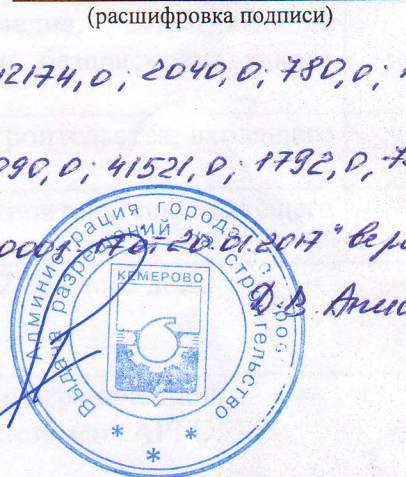 (расшифровка подписи)
2174,0; 2040,0; 780,0;
090,0; 41521,0; 1792,0,
20.01.2017" вер
Д.В.
Администрация города Кемерово
Выдача разрешений на строительство
КЕМЕРОВО
* * *